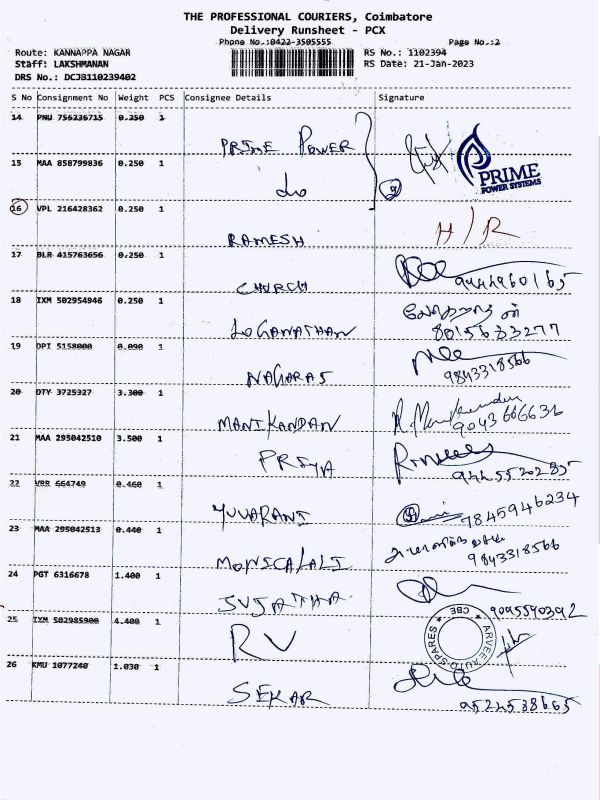 THE PROFESSIONAL COURIERS, Coimbatore
Delivery Runsheet - PCX
Phone No.:0422-3505555 Page No.:2
Route: KANNAPPA NAGAR RS No.: 1102394
Staff: LAKSHMANAN RS Date: 21-Jan-2023
DRS No.: DCJB110239402
S No Consignment No Weight PCS Consignee Details Signature
14 PNU 756236715 0.250 1
PRIME POWER
15 MAA 858799836 0.250 1
PRIME
POWER SYSTEMS
16 VPL 216428362 0.250 1
RAMESH H/R
17 BLR 415763656 0.250 1
CHURCH 9444960165
18 IXM 502954946 0.250 1
LOGANATHAN 8015683277
19 DPI 5158000 0.090 1
NAGARAJ 9843318566
20 DTY 3725327 3.300 1
MANIKANDAN 9043666636
21 MAA 295042510 3.500 1
PRIYA 9445520285
22 VRR 664749 0.460 1
YUVARANI 9845946234
23 MAA 295042513 0.440 1
MONICALALI 9843318566
24 PGT 6316678 1.400 1
SUJATHA 9095590392
25 IXM 502985900 4.400 1
RV ARVEE AUTO SPARES CBE
26 KMU 1077240 1.030 1
SEKAR 9524538665